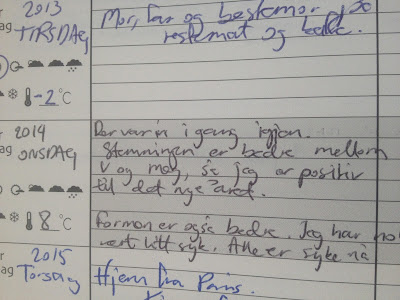 2013
ag TIRSDAG
Mor, far og bestemor
restemat og kake.
-2°C
2014
ag ONSDAG
Der var'n i gang igjen.
Stemningen er bedre mellom
V og meg, så jeg er positiv
til det nye året.
8°C
Formen er også bedre. Jeg har
vært litt syk. Alle er syke nå
2015
ag Torsdag
Hjem fra Paris.